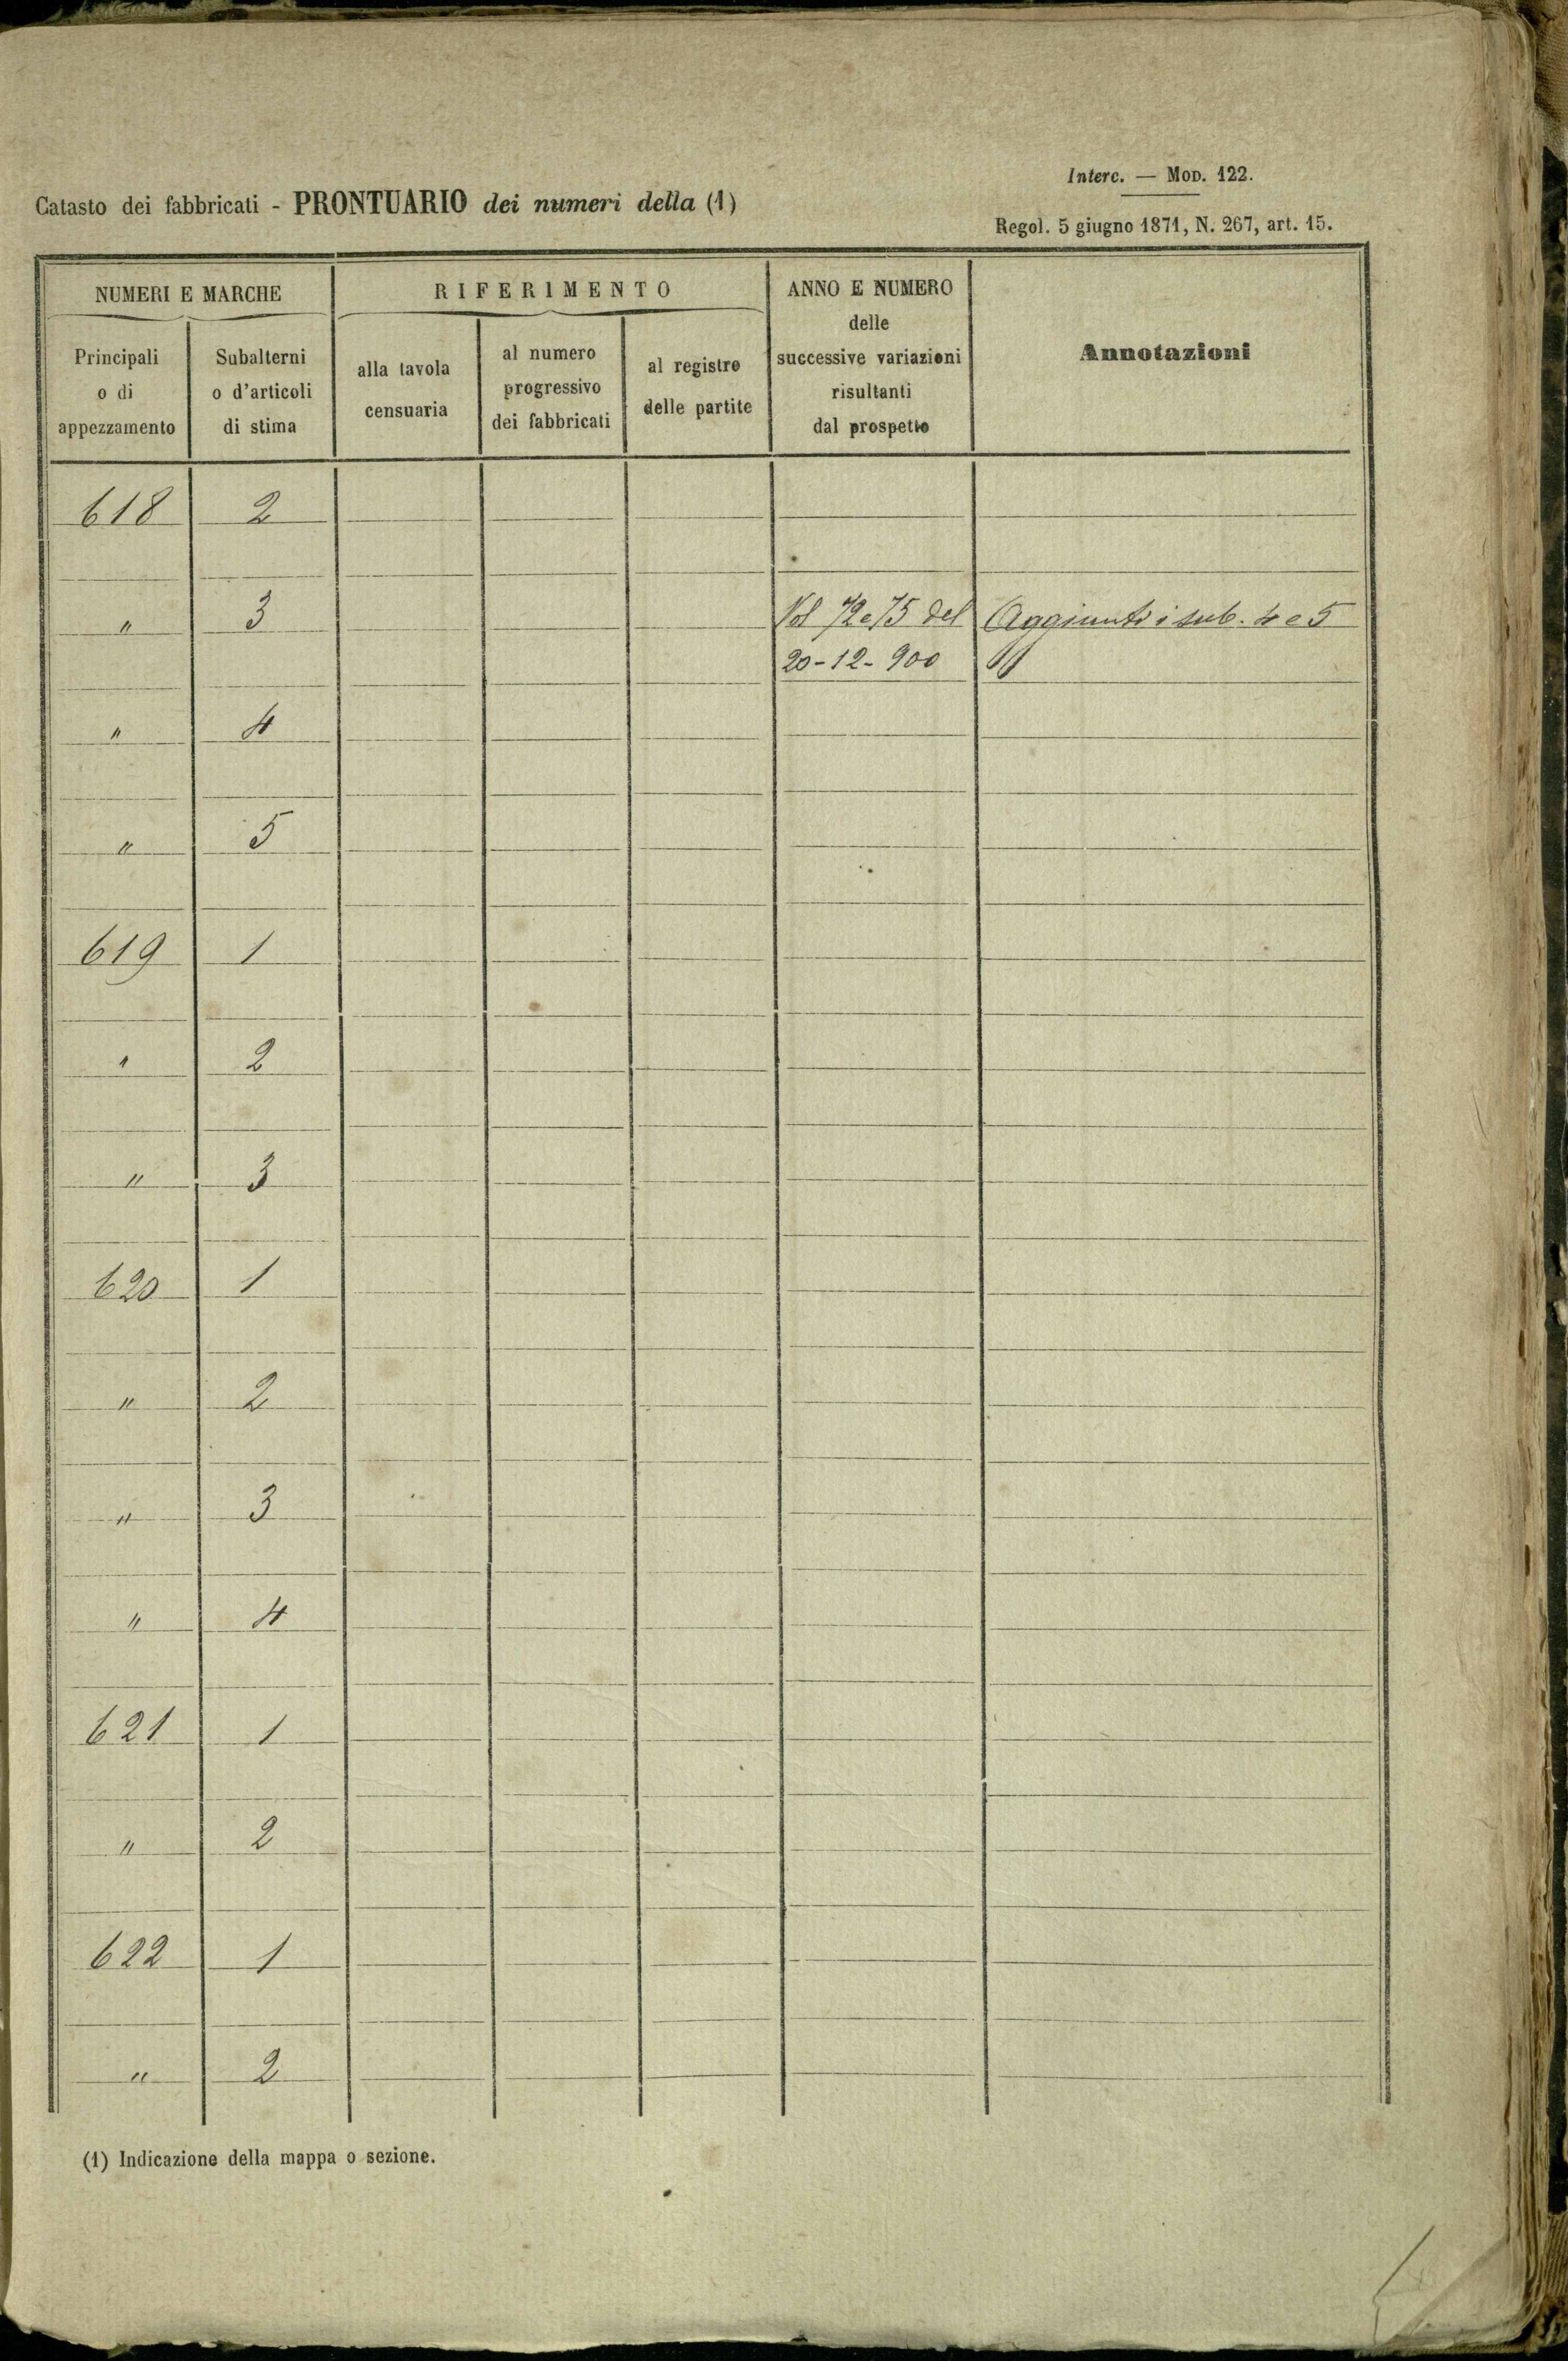 Interc. — Mod. 122.
Catasto dei fabbricati - PRONTUARIO dei numeri della (1)
Regol. 5 giugno 1871, N. 267, art. 15.
NUMERI E MARCHE
Principali
o di
appezzamento
Subalterni
o d'articoli
di stima
RIFERIMENTO
alla tavola
censuaria
al numero
progressivo
dei fabbricati
al registro
delle partite
ANNO E NUMERO
delle
successive variazioni
risultanti
dal prospetto
Annotazioni
618 2
" 3 Vol 72 e 75 del Aggiunti i sub. 4 e 5
20-12-900
" 4
" 5
619 1
" 2
" 3
620 1
" 2
" 3
" 4
621 1
" 2
622 1
" 2
(1) Indicazione della mappa o sezione.